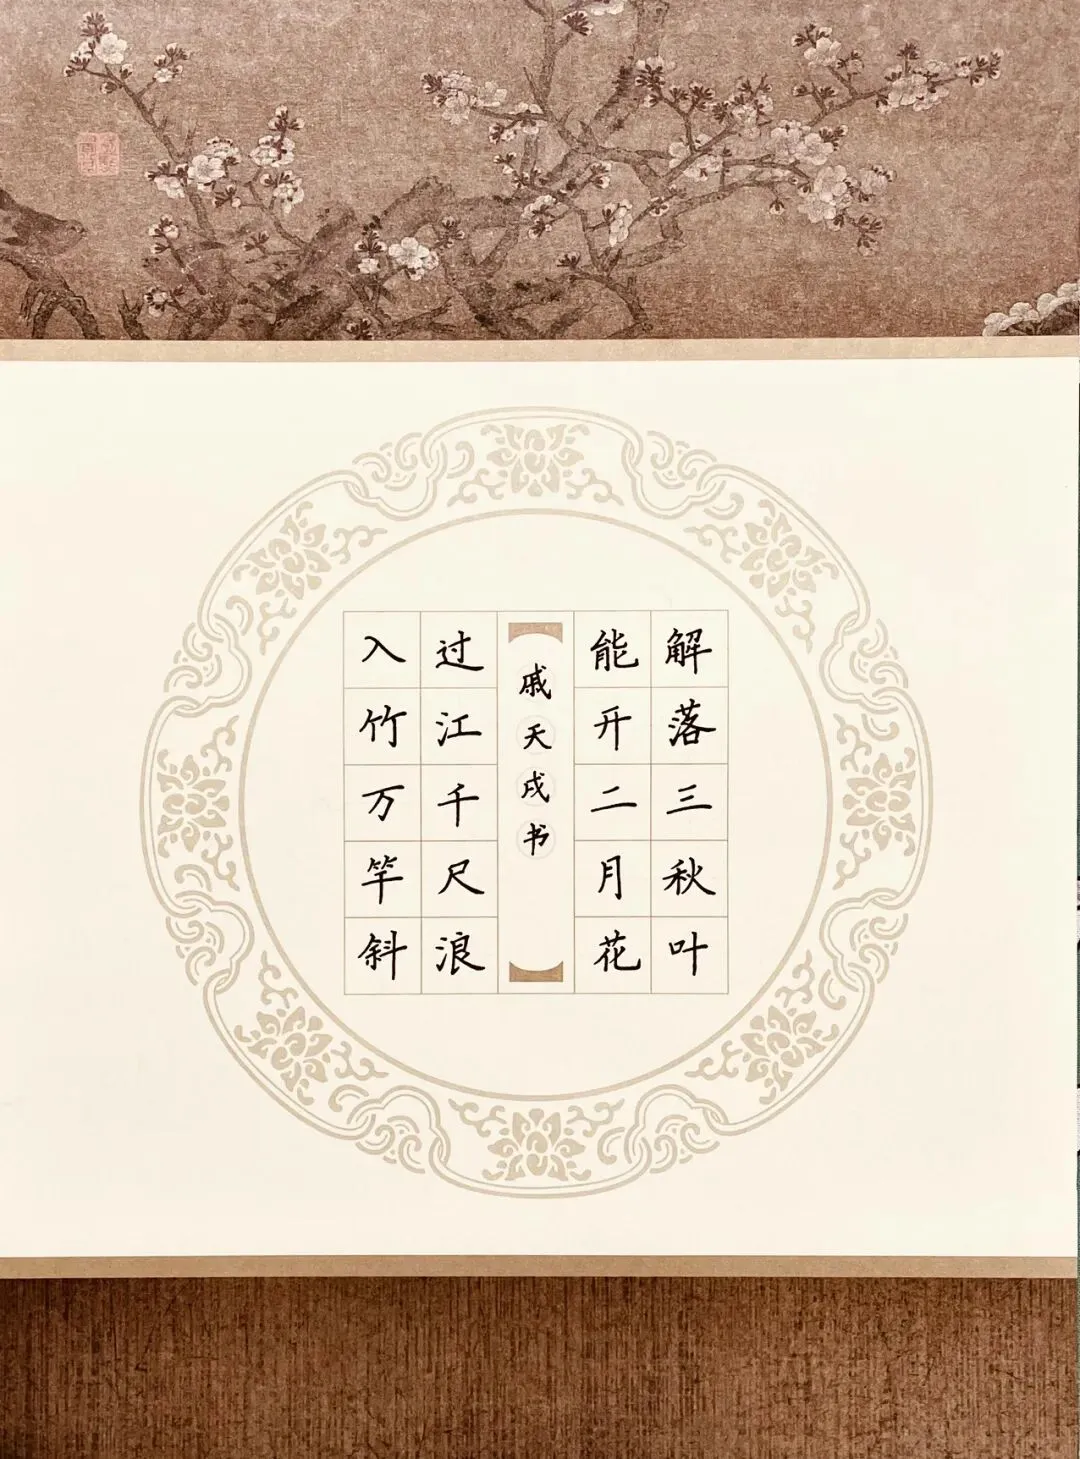 解落三秋叶
能开二月花
戚天戌书
过江千尺浪
入竹万竿斜